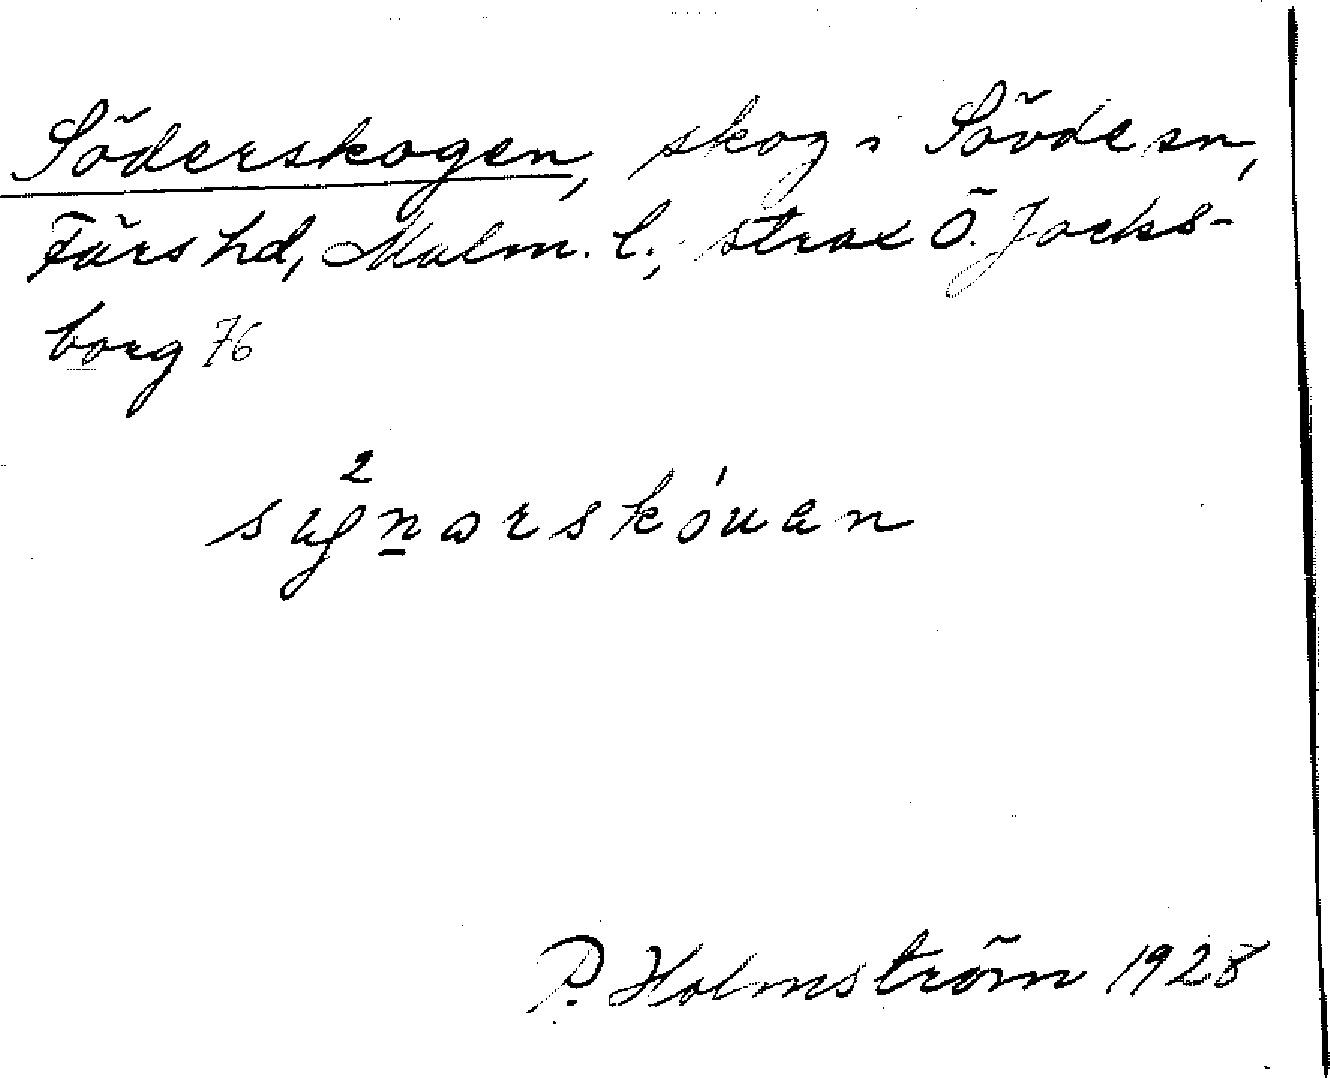 Söderskogen, skog i Sövde sn,
Färs hd, Malm. l., strax Ö. Jocks-
borg 76
P. Holmström 1928